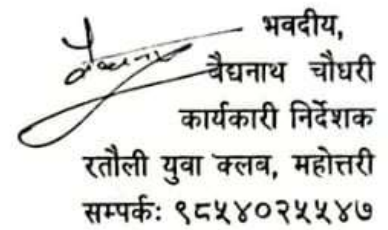 भवदीय,
बैद्यनाथ चौधरी
कार्यकारी निर्देशक
रतौली युवा क्लब, महोत्तरी
सम्पर्कः ९८५४०२५५४७